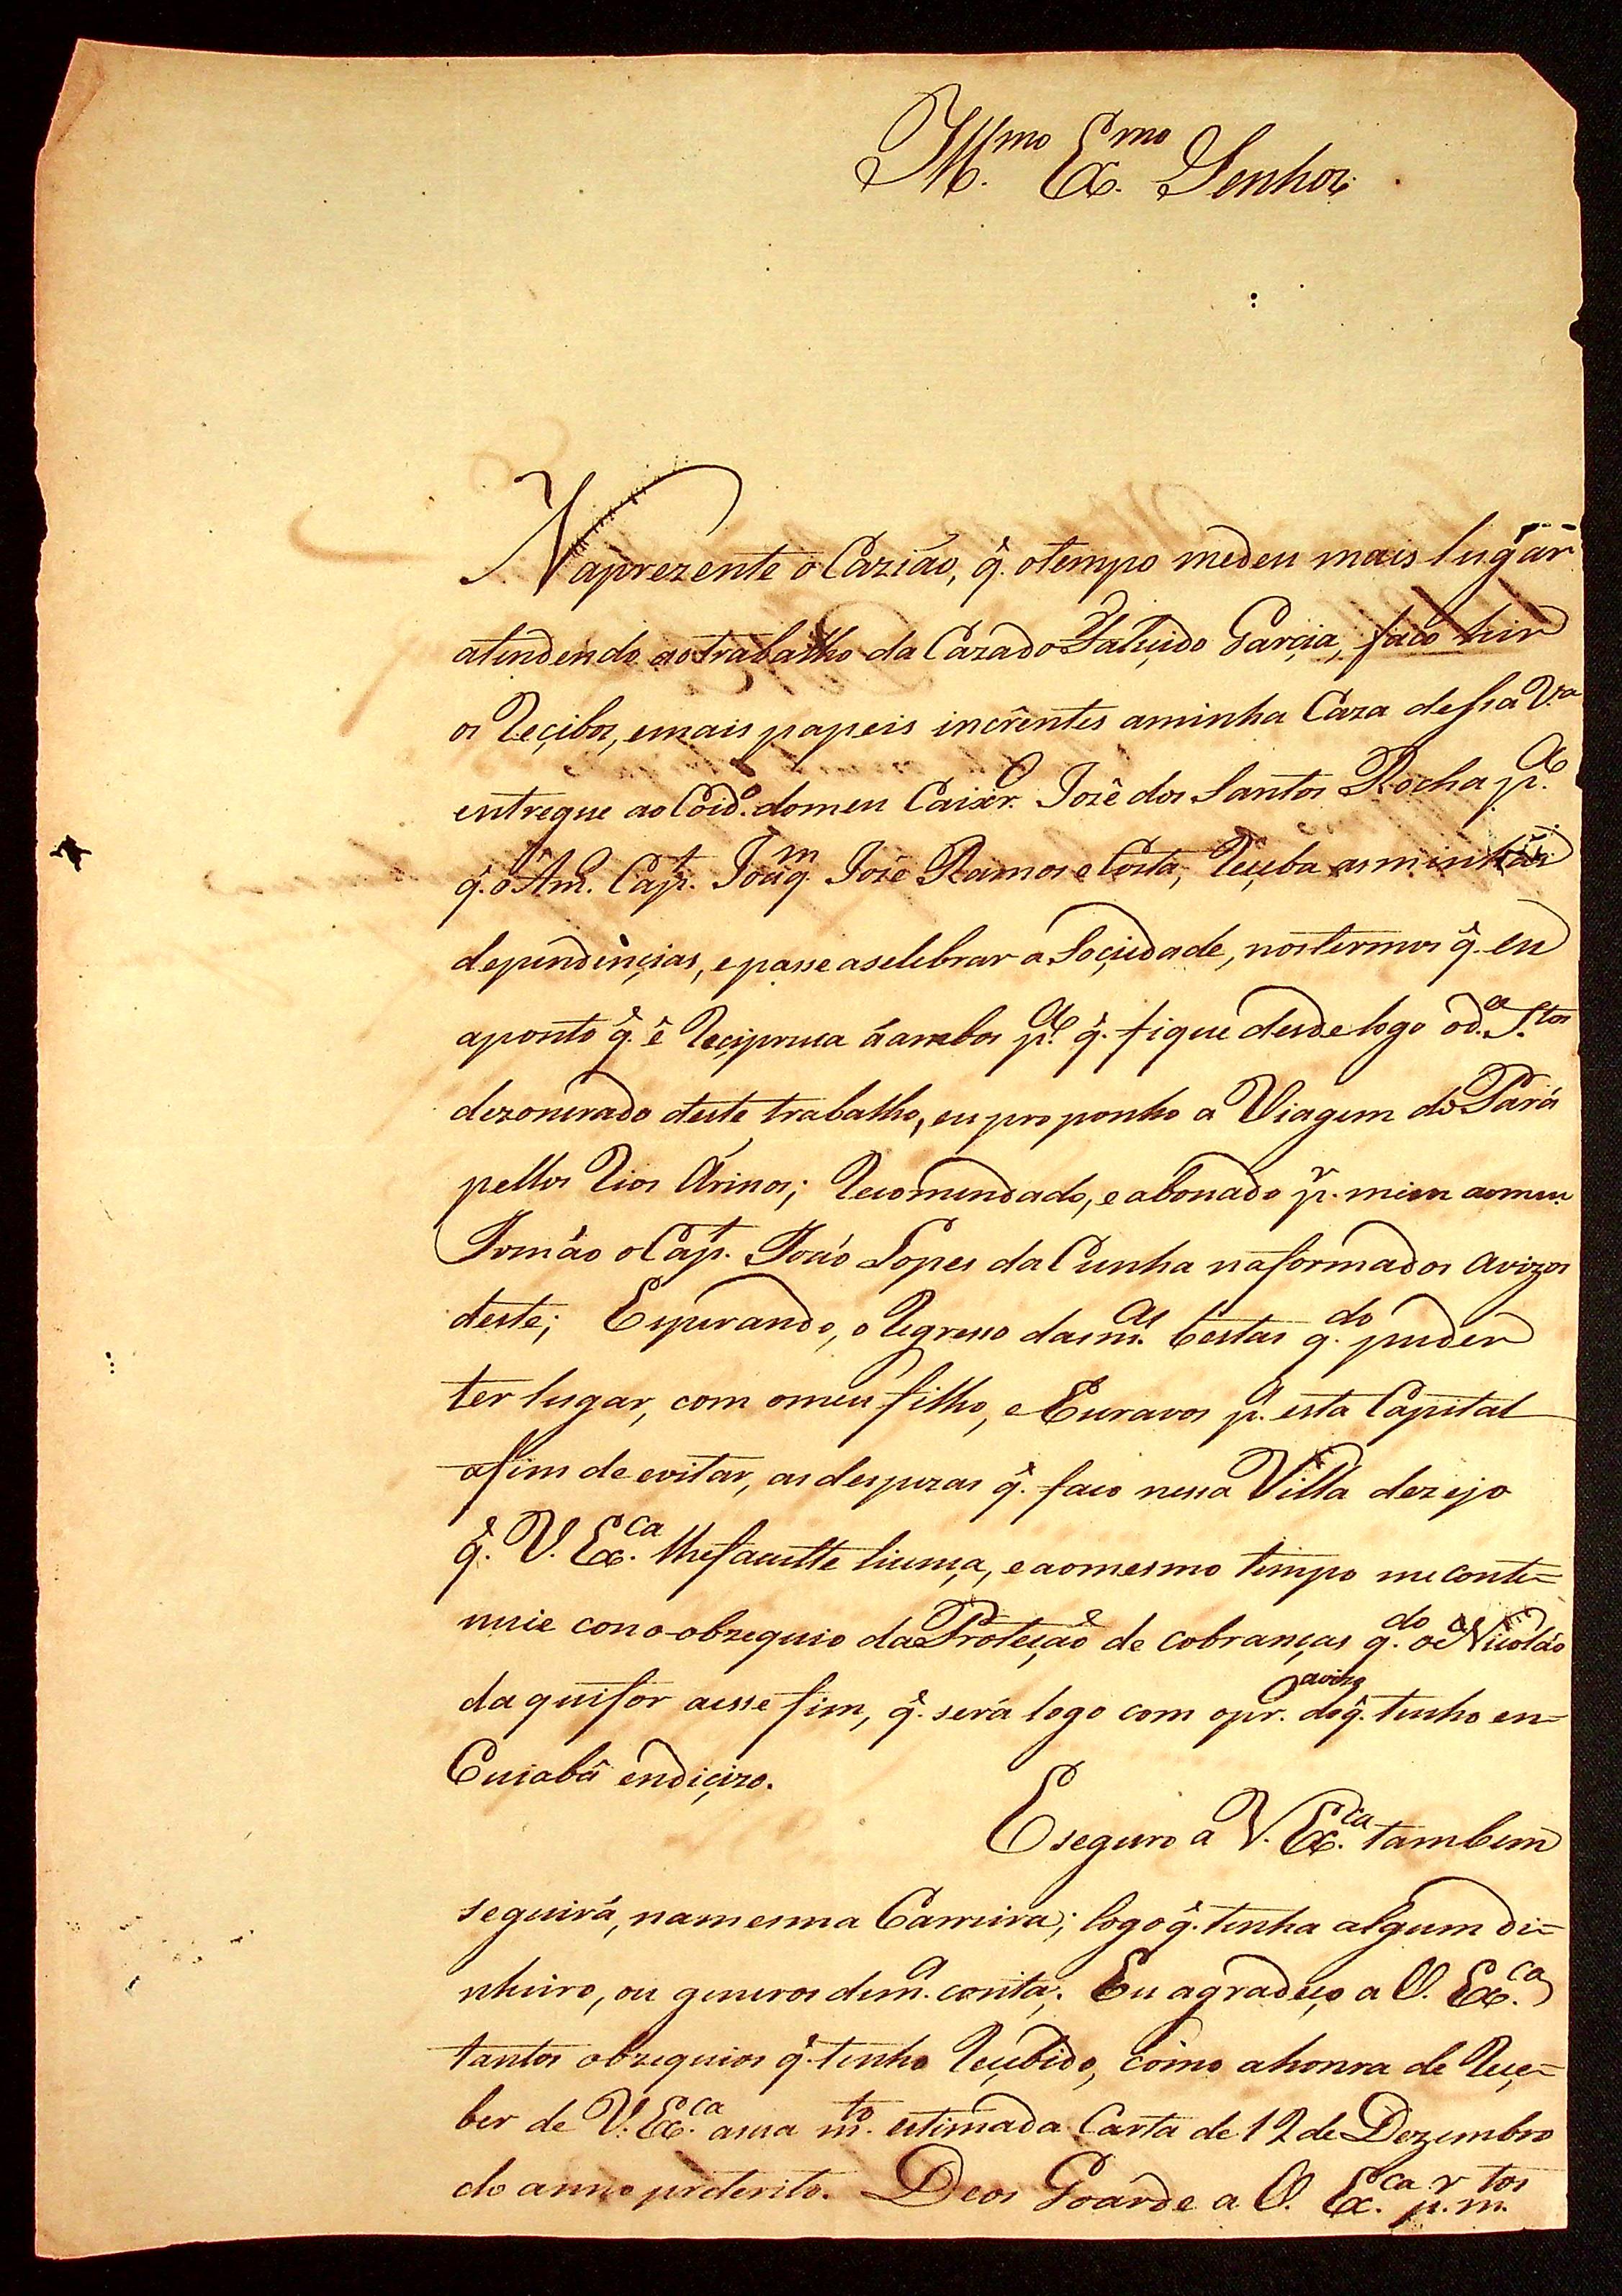 Ill.mo Ex.mo Senhor.
Naprezente oCazião, q̂. otempo medeu mais lugar
atendendo aotrabalho da CazadoFalecido Garçia, faço hir
os Reçibos, emais papeis incrêntes aminha Caza dessa V.a
entregue ao Coid.o domeu Caixr.o Jozê dos Santos Rocha p.a
q̂. o Am.o Cap.t Joaq.m Jozé Ramos e Costa, Reçeba asminhas
dependençias, epasse aselebrar a Soçiedade, nostermos q̂. eu
aponto q̂. ê Reçiproca áambos p.a q̂. fique desdelogo od.o S.tos
dezonerado deste trabalho, eu proponho a Viagem do Pará
pellos Rios Arinos; Recomendado, e abonado p.r mim aomeu
Irmão o Cap.t João Lopes da Cunha naformados avizos
deste; Esperando, o Regresso dasm.as bestas q.do puder
ter lugar, com omeu filho, e Escravos p.a esta Capital
afim de evitar, as despezas q̂. faço nessa Villa dezejo
q̂. V. Ex.ca lhefacilitte liçença, eaomesmo tempo meconti=
nuie cono obzequio da Proteção de cobranças q.do o Nicoláo
da qui for aesse fim, q̂. será logo com o pr.o avizo doq̂. tenho en=
Cuiabá endiçizo.
Eseguro a V. Ex.ca tambem
seguirá, namesma Carreira; logo q̂. tenha algum di=
nheiro, ou generos dem.a conta; Eu agradeço a V. Ex.ca
tantos obzequios q̂. tenho Reçebido, como ahonra de Reçe=
ber de V. Ex.ca asua m.to estimada Carta de 12 de Dezembro
do anno preterito. Deos Goarde a V. Ex.ca p.r m.tos